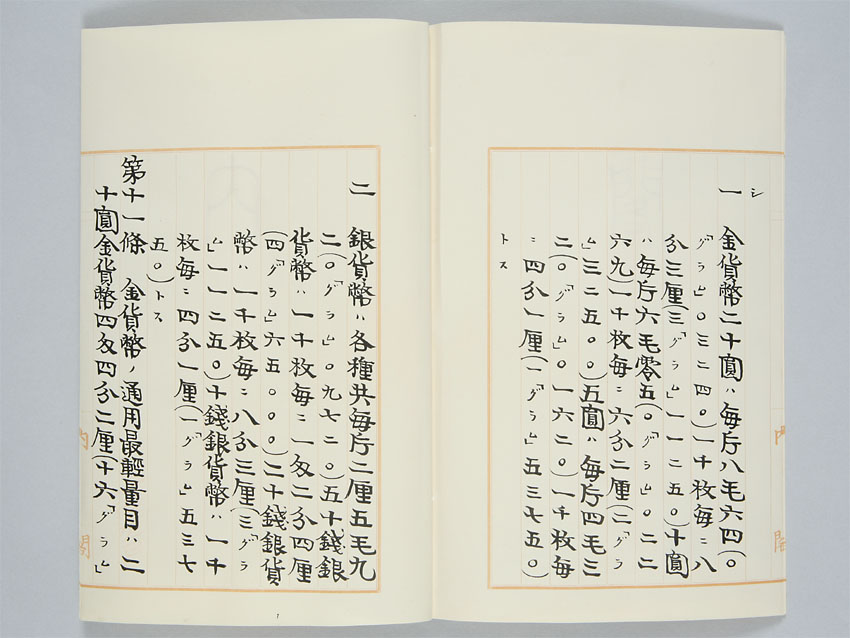 シ
一 金貨幣二十圓ハ每片八毛六四(〇
「グラム」〇三二四〇)一千枚每ニ八
分三厘(三「グラム」一一二五〇)十圓
ハ每片六毛零五(〇「グラム」〇二二
六九)一千枚每ニ六分二厘(二「グラ
ム」三二五〇〇)五圓ハ每片四毛三
二(〇「グラム」〇一六二〇)一千枚每
ニ四分一厘(一「グラム」五三七五〇)
トス
二 銀貨幣ハ各種共每片二厘五毛九
二(〇「グラム」〇九七二〇)五十錢銀
貨幣ハ一千枚每ニ一匁二分四厘
(四「グラム」六五〇〇〇)二十錢銀貨
幣ハ一千枚每ニ八分三厘(三「グラ
ム」一一二五〇)十錢銀貨幣ハ一千
枚每ニ四分一厘(一「グラム」五三七
五〇)トス
第十一條 金貨幣ノ通用最輕量目ハ二
十圓金貨幣四匁四分二厘(十六「グラム」
内閣